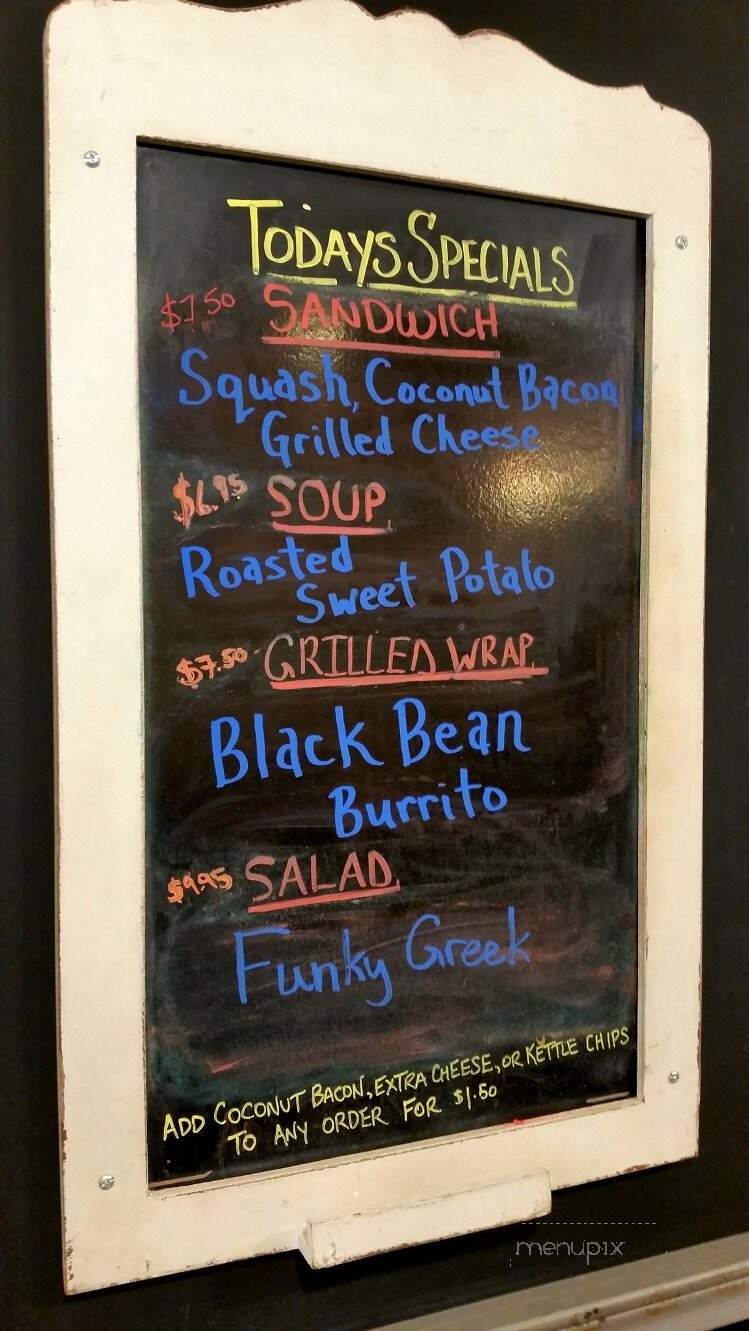 TODAYS SPECIALS
$7.50 SANDWICH
Squash, Coconut Bacon
Grilled Cheese
$6.95 SOUP
Roasted
Sweet Potato
$7.50 GRILLED WRAP
Black Bean
Burrito
$9.95 SALAD
Funky Greek
ADD COCONUT BACON, EXTRA CHEESE, OR KETTLE CHIPS
TO ANY ORDER FOR $1.50
menupix